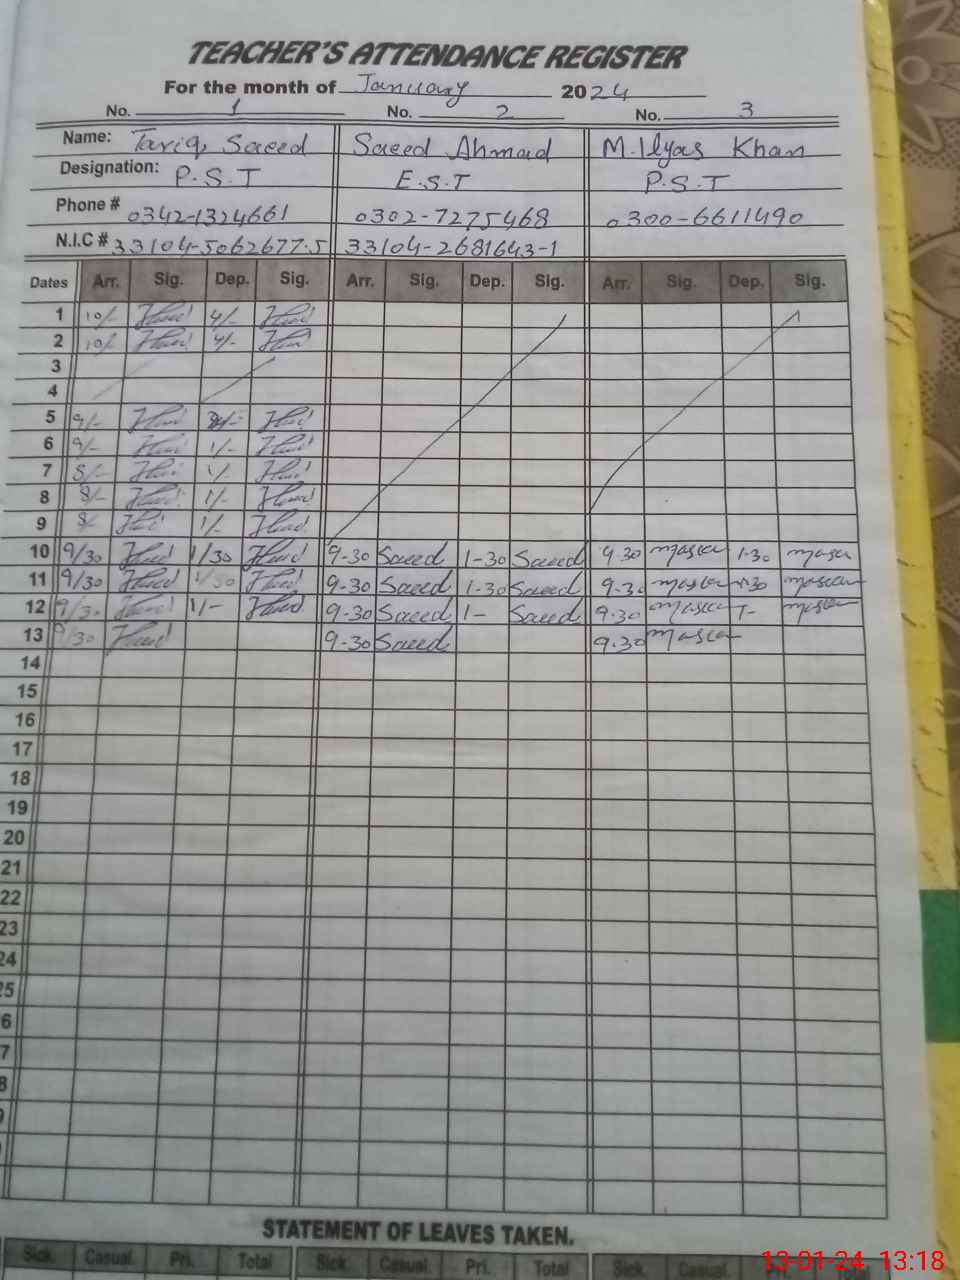 TEACHER'S ATTENDANCE REGISTER
For the month of January 2024
No. 1 No. 2 No. 3
Name: Tariq Saeed Saeed Ahmad M. Ilyas Khan
Designation: P.S.T E.S.T P.S.T
Phone # 0342-1324661 0302-7275468 0300-6611490
N.I.C # 33104-5062677-5 33104-2681643-1
Dates Arr. Sig. Dep. Sig. Arr. Sig. Dep. Sig. Arr. Sig. Dep. Sig.
1 10/- 4/-
2 10/- 4/-
3
4
5 9/-
6 9/- 1/-
7 8/- 1/-
8 8/- 1/-
9 8/- 1/-
10 9/30 1/30 9-30 Saeed 1-30 Saeed 9-30 1-30
11 9/30 1/30 9-30 Saeed 1-30 Saeed 9-30 1-30
12 9/30 1/- 9-30 Saeed 1- Saeed 9-30 1-
13 9/30 9-30 Saeed 9-30
14
15
16
17
18
19
20
21
22
23
24
25
6
7
8
STATEMENT OF LEAVES TAKEN.
Sick Casual Pri. Total Sick Casual Pri. Total Sick Casual
13-01-24 13:18